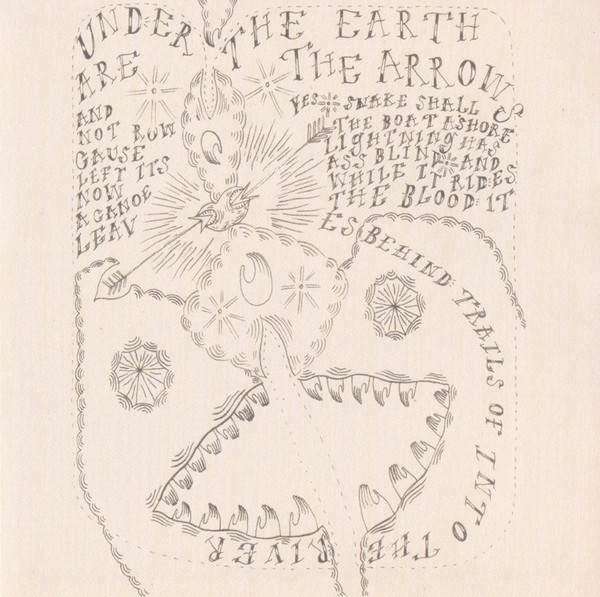 UNDER THE EARTH
ARE THE ARROWS
AND
NOT BOW
CAUSE
LEFT ITS
NOW
A CANOE
LEAV
YES SNAKE SHALL
THE BOAT ASHORE
LIGHTNING HAS
ASS BLIND AND
WHILE IT RIDES
THE BLOOD: IT
ES BEHIND: TRAILS OF INTO
THE RIVER